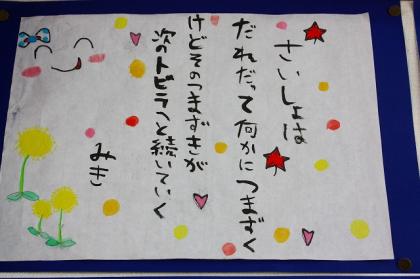 さいしょは
だれだって何かにつまずく
けどそのつまずきが
次のトビラへと続いていく
みき